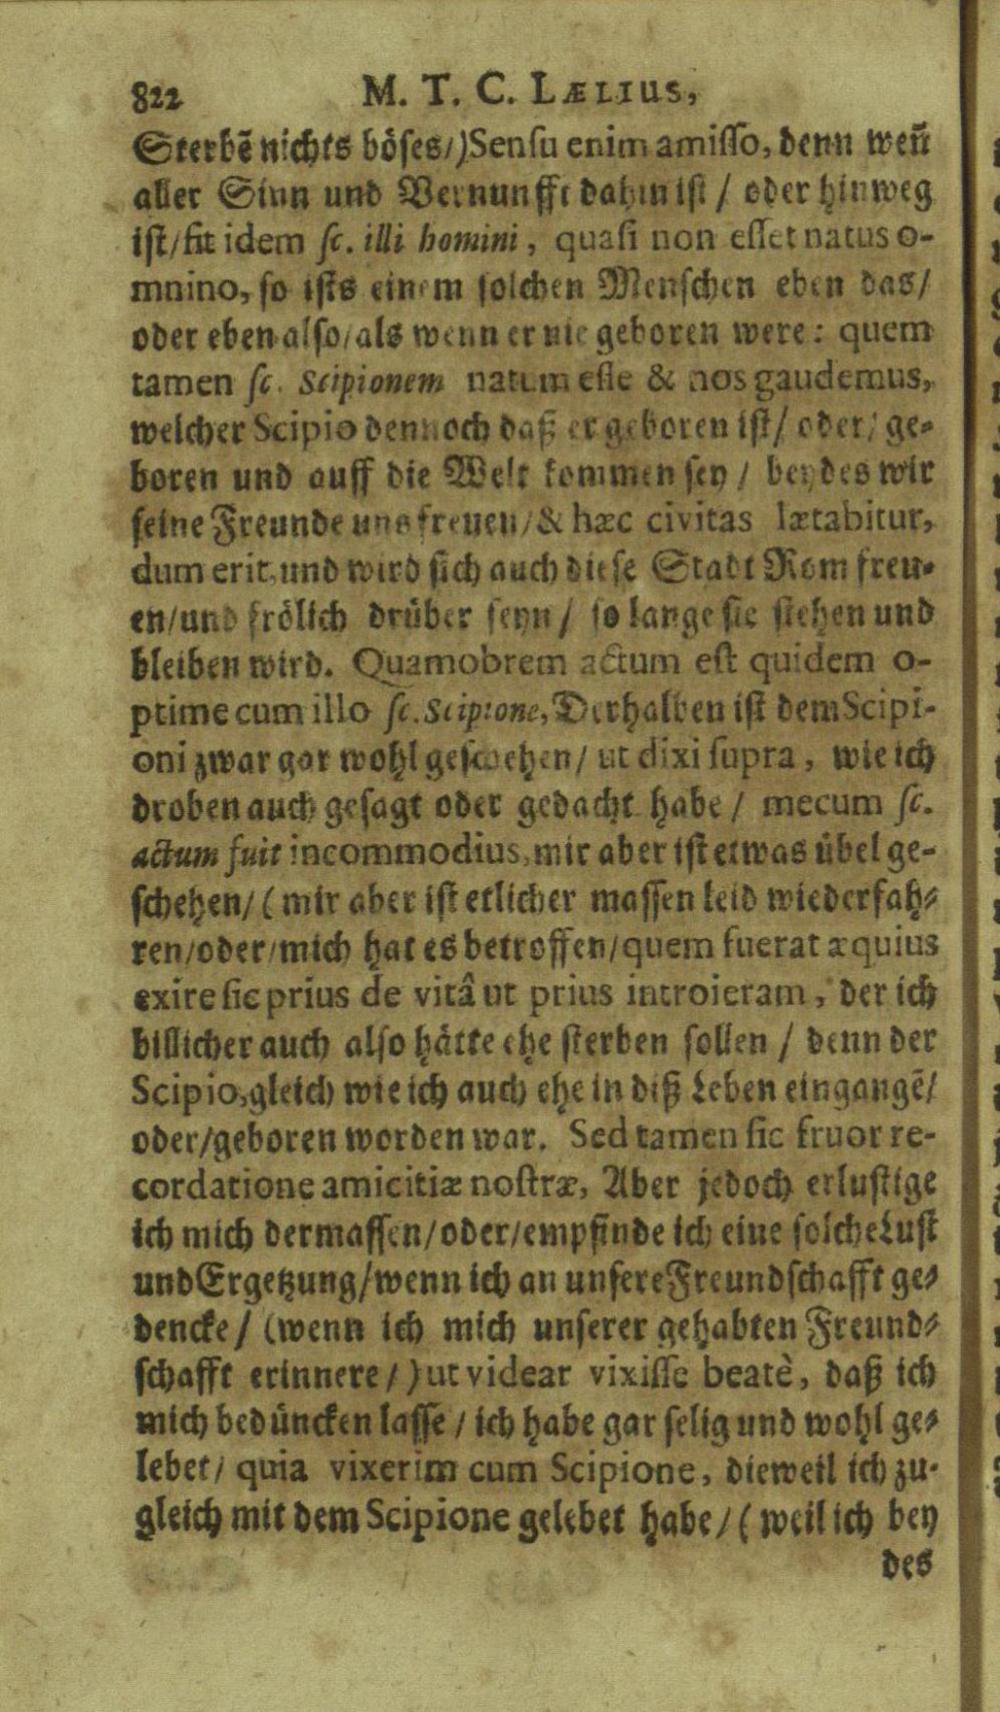 822 M. T. C. LÆLIUS,
Sterbẽ nichts böses/) Sensu enim amisso, denn weñ
aller Sinn und Vernunfft dahin ist / oder hinweg
ist/ fit idem sc. illi homini, quasi non esset natus o-
mnino, so ists einem solchen Menschen eben das/
oder eben also/ als wenn er nie geboren were: quem
tamen sc. Scipionem natum esse & nos gaudemus,
welcher Scipio dennoch daß er geboren ist/ oder/ ge-
boren und auff die Welt kommen sey / beydes wir
seine Freunde uns freuen/ & hæc civitas lætabitur,
dum erit, und wird sich auch diese Stadt Rom freu-
en/ und frölich drüber seyn / so lange sie stehen und
bleiben wird. Quamobrem actum est quidem o-
ptime cum illo sc. Scipione, Derhalben ist dem Scipi-
oni zwar gar wohl geschehen/ ut dixi supra, wie ich
droben auch gesagt oder gedacht habe / mecum sc.
actum fuit incommodius, mir aber ist etwas übel ge-
schehen/ (mir aber ist etlicher massen leid wiederfah-
ren/ oder/ mich hat es betroffen/ quem fuerat æquius
exire sic prius de vitâ ut prius introieram, der ich
billicher auch also hätte ehe sterben sollen / denn der
Scipio, gleich wie ich auch ehe in diß Leben eingangẽ/
oder/ geboren worden war. Sed tamen sic fruor re-
cordatione amicitiæ nostræ, Aber jedoch erlustige
ich mich dermassen/ oder/ empfinde ich eine solche Lust
und Ergetzung/ wenn ich an unsere Freundschafft ge-
dencke/ (wenn ich mich unserer gehabten Freund-
schafft erinnere/) ut videar vixisse beatè, daß ich
mich bedüncken lasse / ich habe gar selig und wohl ge-
lebet/ quia vixerim cum Scipione, dieweil ich zu-
gleich mit dem Scipione gelebet habe/ (weil ich bey
des